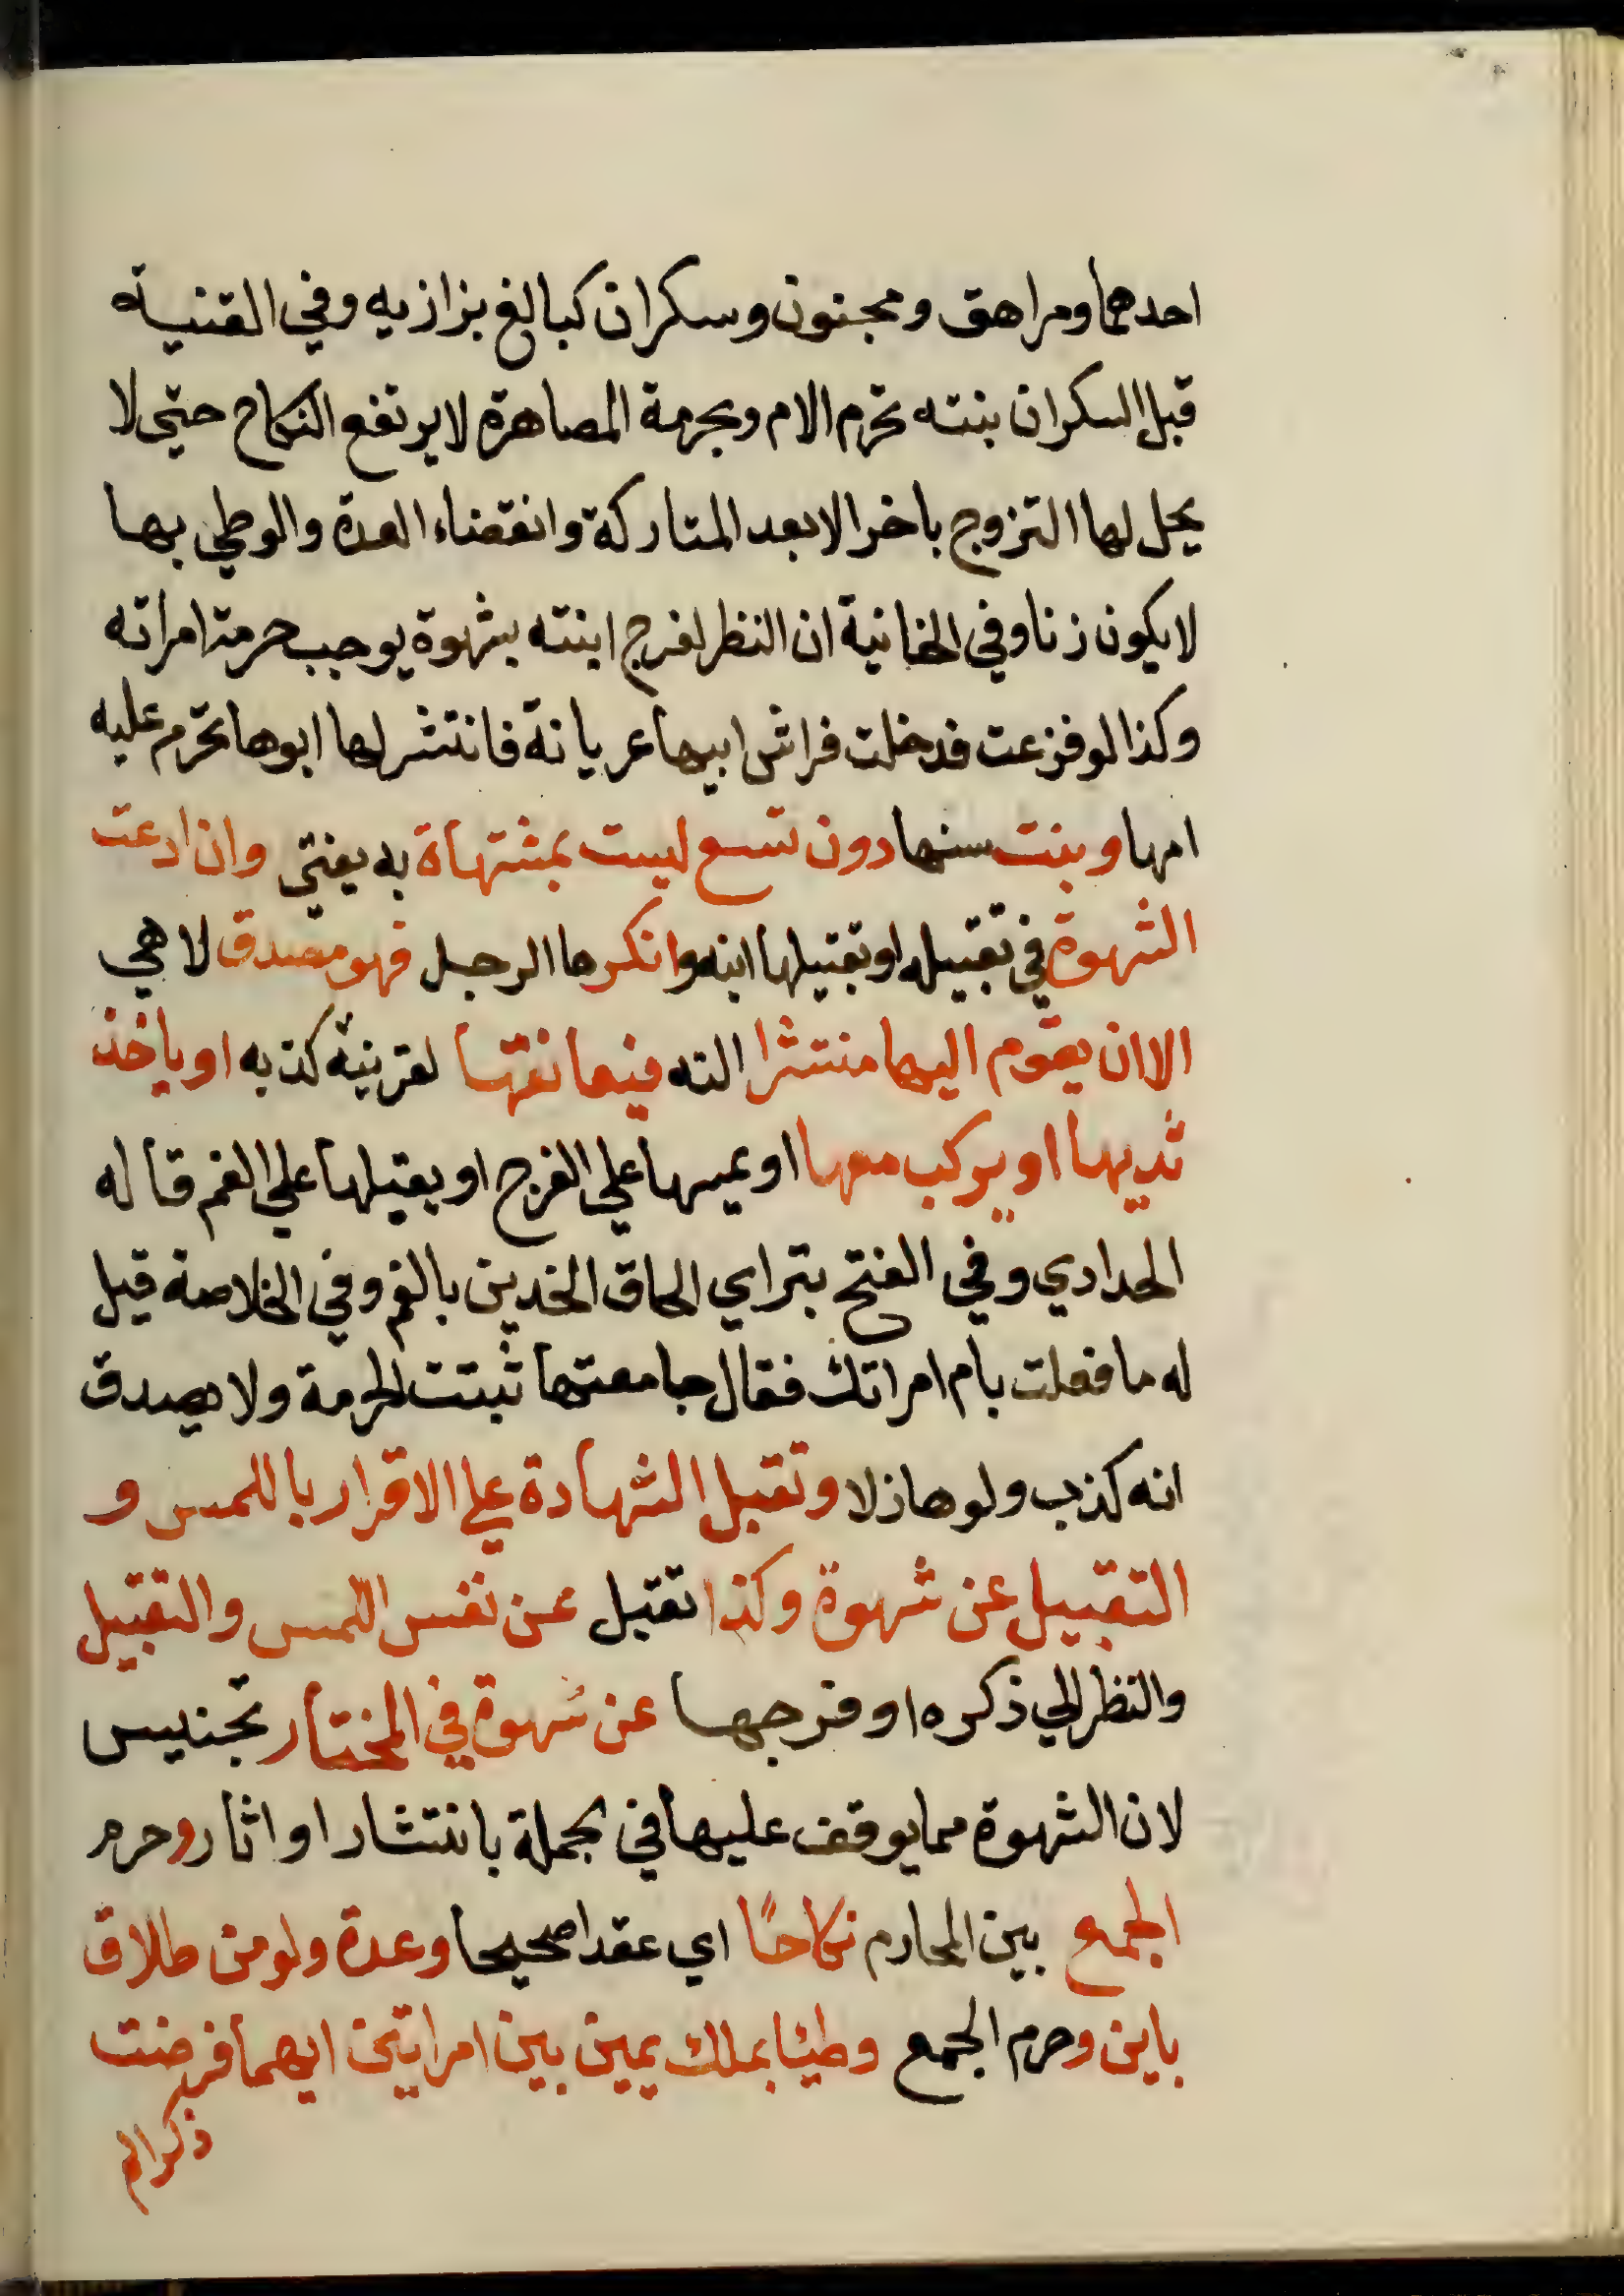 احدهما ومراهق ومجنون وسكران كبالغ بزازيه وفي القنية
قبل السكران بنته تحرم الام وبحرمة المصاهرة لا يرتفع النكاح حتى لا
يحل لها التزوج باخر الا بعد المتاركة وانقضاء العدة والوطي بها
لا يكون زنا وفي الخانية ان النظر لفرج ابنته بشهوة يوجب حرمة امراته
وكذا لو فزعت فدخلت فراش ابيها عريانة فانتشر لها ابوها تحرم عليه
امها وبنت سنها دون تسع ليست بمشتهاة به يفتي وان ادعت
الشهوة في تقبيله او تقبيلها ابنه وانكرها الرجل فهو مصدق لا هي
الا ان يقوم اليها منتشرا الته فيعانقها لقرينة كذبه او ياخذ
ثديها او يركب معها او يمسها علي الفرج او يقبلها علي الفم قاله
الحدادي وفي الفتح يتراي الحاق الخدين بالفم وفي الخلاصة قيل
له ما فعلت بام امراتك فقال جامعتها ثبتت الحرمة ولا يصدق
انه كذب ولو هازلا وتقبل الشهادة علي الاقرار باللمس و
التقبيل عن شهوة وكذا تقبل عن نفس اللمس والتقبيل
والنظر الي ذكره او فرجها عن شهوة في المختار تجنيس
لان الشهوة مما يوقف عليها في بجملة بانتشار او اثار وحرم
الجمع بين المحارم نكاحًا اي عقدا صحيحا وعدة ولو من طلاق
باين وحرم الجمع وطيئا بملك يمين بين امراتين ايهما فرضت
ذكرا لم